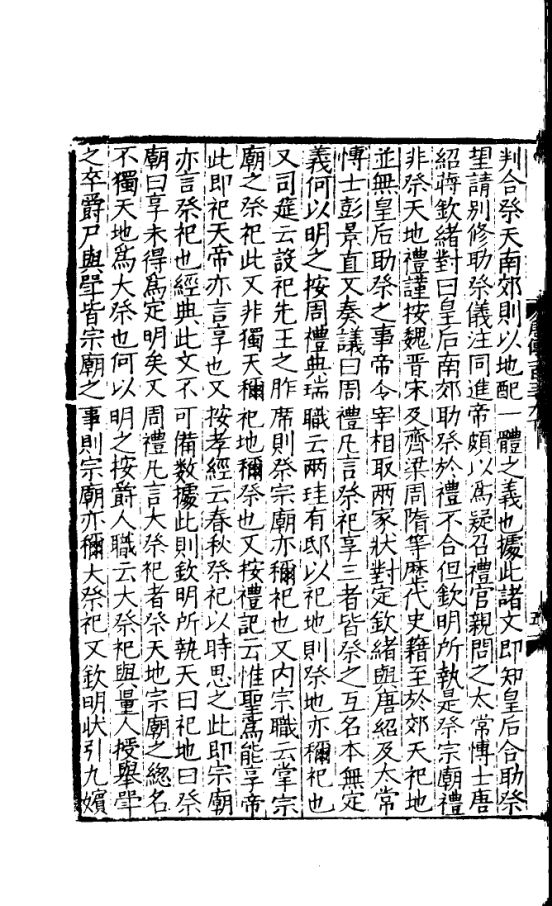 判合祭天南郊則以地配一體之義也據此諸文即知皇后合助祭
望請别修助祭儀注同進帝頗以爲疑召禮官親問之太常博士唐
紹蔣欽緒對曰皇后南郊助祭於禮不合但欽明所執是祭宗廟禮
非祭天地禮謹按魏晉宋及齊梁周隋等歷代史籍至於郊天祀地
並無皇后助祭之事帝令宰相取兩家狀對定欽緒與唐紹及太常
博士彭景直又奏議曰周禮凡言祭祀享三者皆祭之互名本無定
義何以明之按周禮典瑞職云两珪有邸以祀地則祭地亦稱祀也
又司筵云設祀先王之胙席則祭宗廟亦稱祀也又内宗職云掌宗
廟之祭祀此又非獨天稱祀地稱祭也又按禮記云惟聖爲能享帝
此即祀天帝亦言享也又按孝經云春秋祭祀以時思之此即宗廟
亦言祭祀也經典此文不可備數據此則欽明所執天曰祀地曰祭
廟曰享未得爲定明矣又周禮凡言大祭祀者祭天地宗廟之總名
不獨天地爲大祭也何以明之按爵人職云大祭祀與量人授舉斝
之卒爵尸與斝皆宗廟之事則宗廟亦稱大祭祀又欽明狀引九嬪